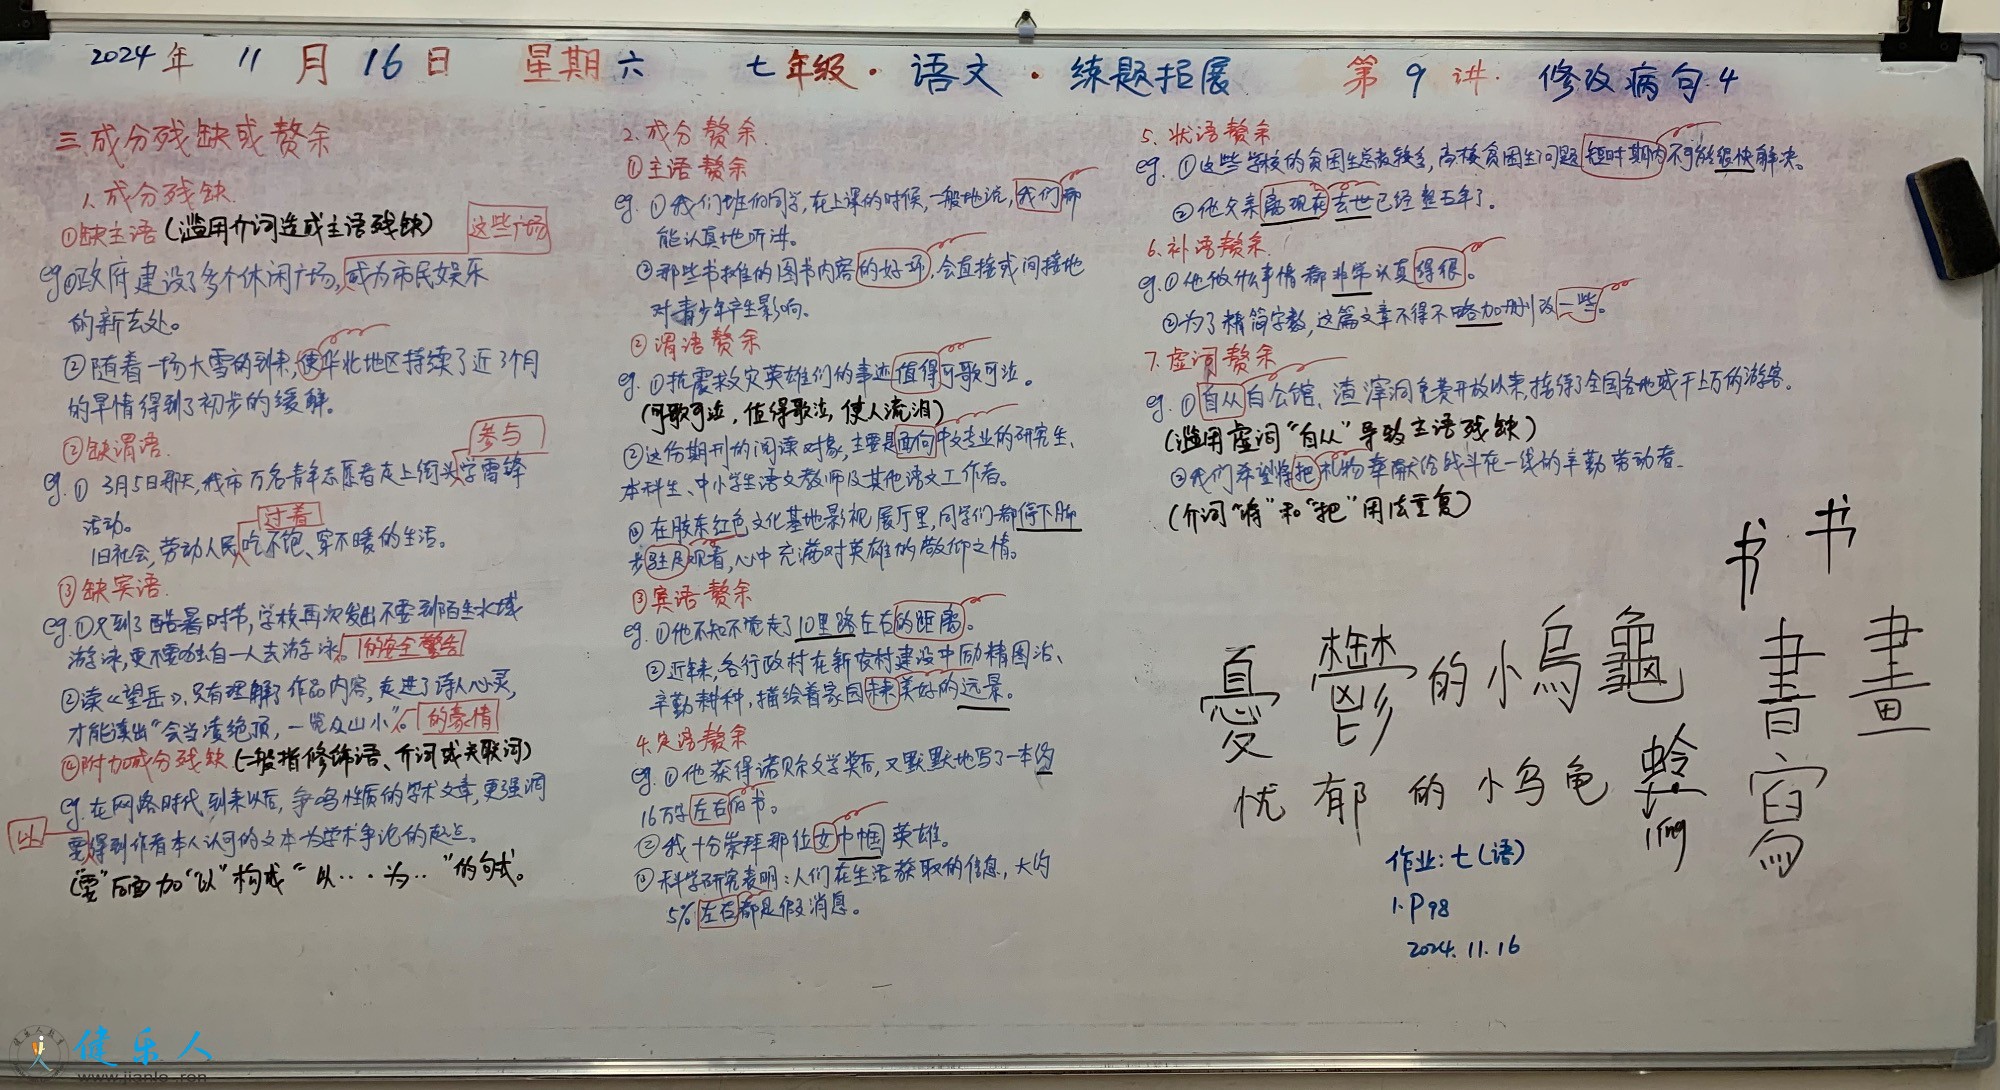 2024年 11月16日 星期六 七年级·语文·练题拓展 第9讲. 修改病句.4
三.成分残缺或赘余
1.成分残缺.
①缺主语(滥用介词造成主语残缺) 这些广场
eg①政府建设了多个休闲广场,成为市民娱乐
的新去处。
②随着一场大雪的到来,使华北地区持续了近3个月
的旱情得到了初步的缓解。
②缺谓语. 参与
eg.① 3月5日那天,我市万名青年志愿者走上街头学雷锋
活动。 过着
旧社会,劳动人民吃不饱、穿不暖的生活。
③缺宾语.
eg.①又到了酷暑时节,学校再次发出不要到陌生水域
游泳,更不要独自一人去游泳。 的安全警告
②读《望岳》,只有理解了作品内容,走进了诗人心灵,
才能读出“会当凌绝顶,一览众山小”。 的豪情
④附加成分残缺(一般指修饰语、介词或关联词)
eg.在网络时代到来以后,争鸣性质的学术文章,更强调
以 要得到作者本人认可的文本为学术争论的起点。
(“要”后面加“以”构成“以···为··”的句式。
2.成分赘余.
①主语赘余
eg.①我们班的同学,在上课的时候,一般地说,我们都
能认真地听讲。
②那些书摊的图书内容的好坏,会直接或间接地
对青少年产生影响。
②谓语赘余
eg.①抗震救灾英雄们的事迹值得可歌可泣。
(可歌可泣,值得歌泣,使人流泪)
②这份期刊的阅读对象,主要是面向中文专业的研究生、
本科生、中小学生语文教师及其他语文工作者。
③在胶东红色文化基地影视展厅里,同学们都停下脚
步驻足观看,心中充满对英雄的敬仰之情。
③宾语赘余
eg.①他不知不觉走了10里路左右的距离。
②近年来,各行政村在新农村建设中励精图治、
辛勤耕种,描绘着家园未来美好的远景。
4.定语赘余
eg.①他获得诺贝尔文学奖后,又默默地写了一本约
16万字左右的书。
②我十分崇拜那位女巾帼英雄。
③科学研究表明:人们在生活获取的信息,大约
5%左右都是假消息。
5.状语赘余
eg.①这些学校的贫困生总数较多,高校贫困生问题短时期内不可能很快解决。
②他父亲离现在去世已经整五年了。
6.补语赘余.
eg.①他做什么事情都非常认真得很。
②为了精简字数,这篇文章不得不略加删改一些。
7.虚词赘余
eg.①自从白公馆、渣滓洞免费开放以来,接待了全国各地成千上万的游客.
(滥用虚词“自从”导致主语残缺)
②我们希望将把礼物奉献给战斗在一线的辛勤劳动者.
(介词“将”和“把”用法重复)
书 书
憂鬱的小烏龜 書 畫
忧郁的小乌龟
ling
作业:七(语)
1.P98
2024.11.16
健乐人
www.jianle.ren